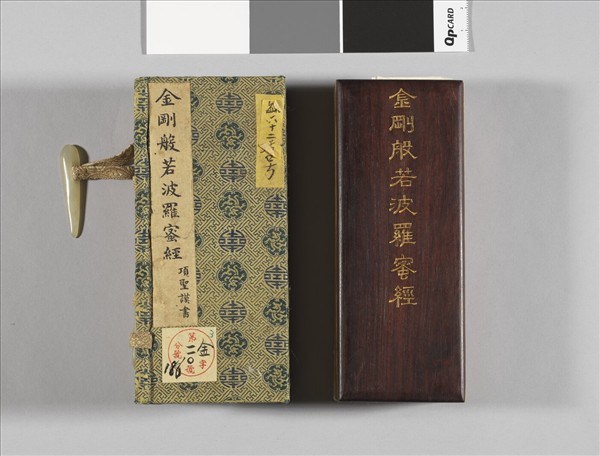 QpCARD
金剛般若波羅蜜經
項聖謨書
六十二
金字
第二〇號
分號
金剛般若波羅蜜經